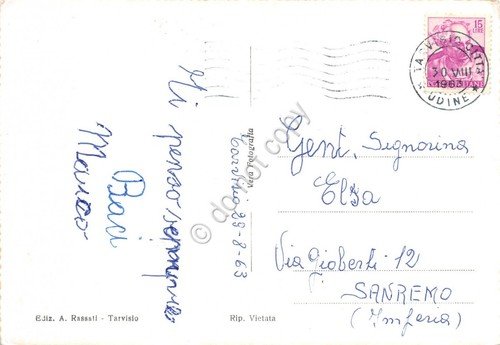 Ti penso sempre
Baci
Marco
Tarvisio 29-8-63
Vera Fotografia
Ediz. A. Rassati - Tarvisio
Rip. Vietata
15
LIRE
TARVISIO CITTA
30.VIII
1963
* UDINE *
Gent. Signorina
Elsa
Via Gioberti 12
SANREMO
(Imperia)
do not copy